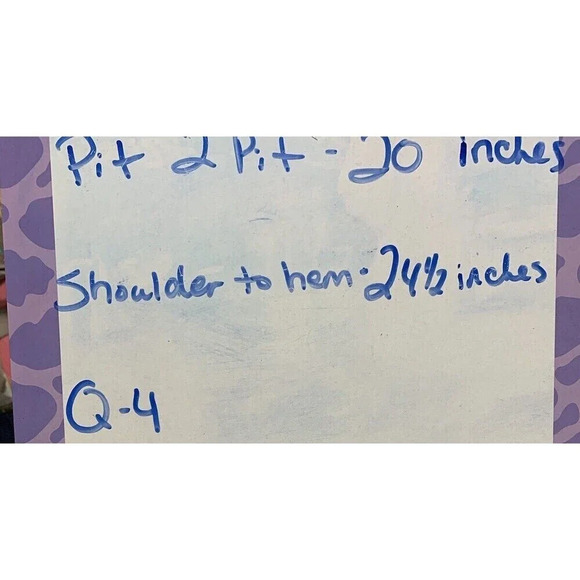 Pit 2 Pit - 20 inches
Shoulder to hem - 24 1/2 inches
Q-4